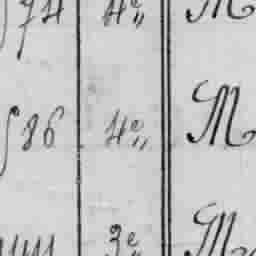 74 4e„ M
86 4e„ M
3e„ M